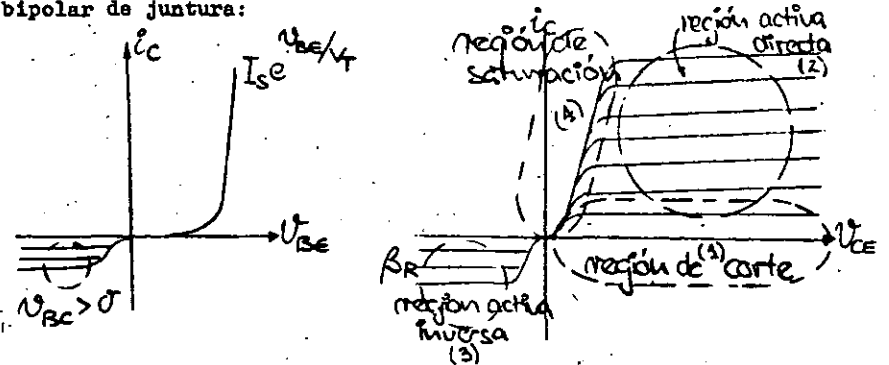 bipolar de juntura:
i_C
I_S e^{v_BE/V_T}
v_BE
v_BC > 0
i_C
región de
saturación
(4)
región activa
directa
(2)
v_CE
β_R
región de (1) corte
región activa
inversa
(3)